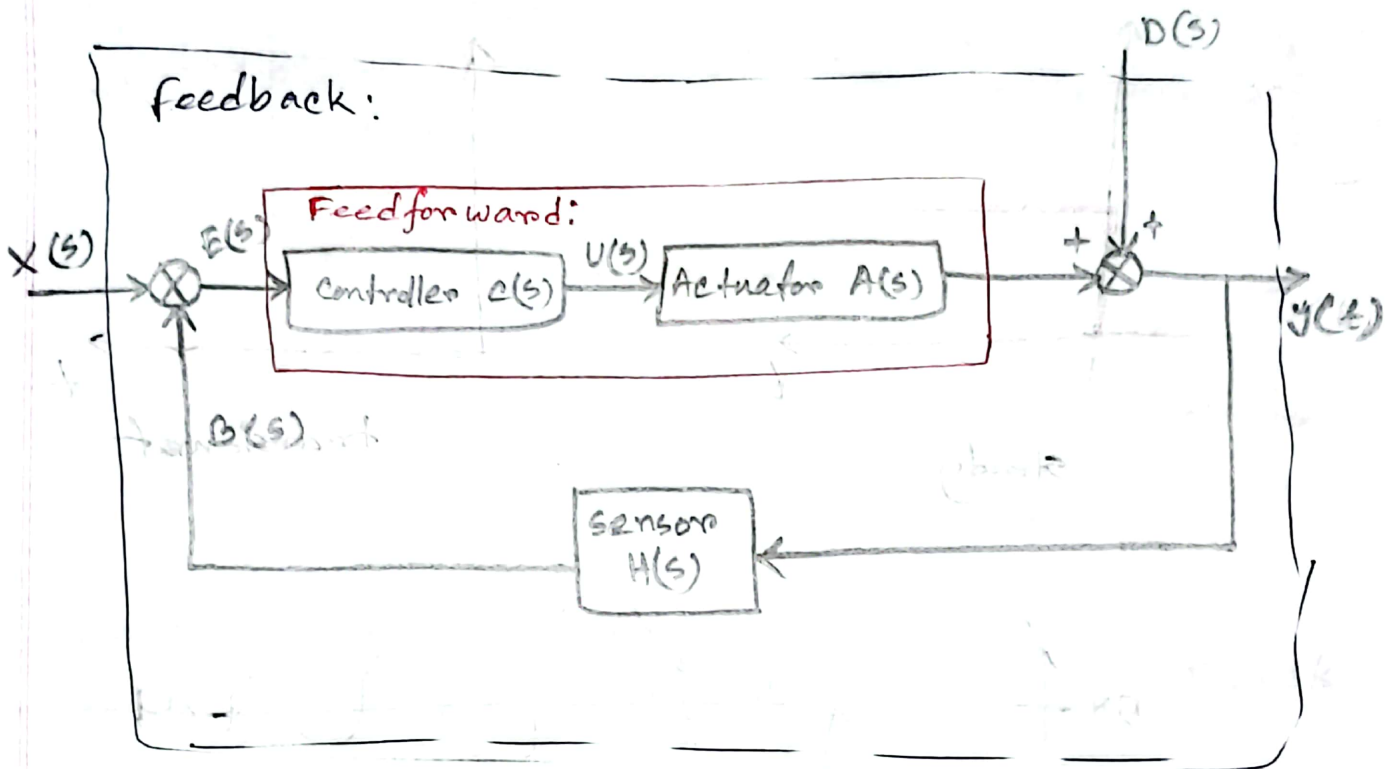 D(s)
feedback:
Feedforward:
X(s)
E(s)
Controller C(s)
U(s)
Actuator A(s)
+
+
y(t)
B(s)
Sensor
H(s)